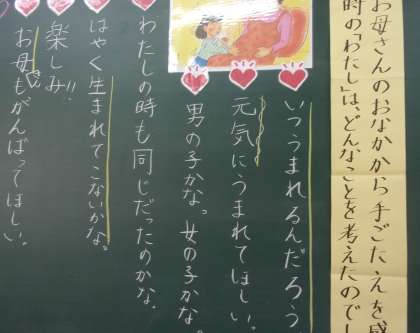 お母さんのおなかから手ごたえを感
時の「わたし」は、どんなことを考えたので
いつうまれるんだろう。
元気にうまれてほしい。
男の子かな。女の子かな。
わたしの時も同じだったのかな。
はやく生まれてこないかな。
楽しみ!!
お母もがんばってほしい。